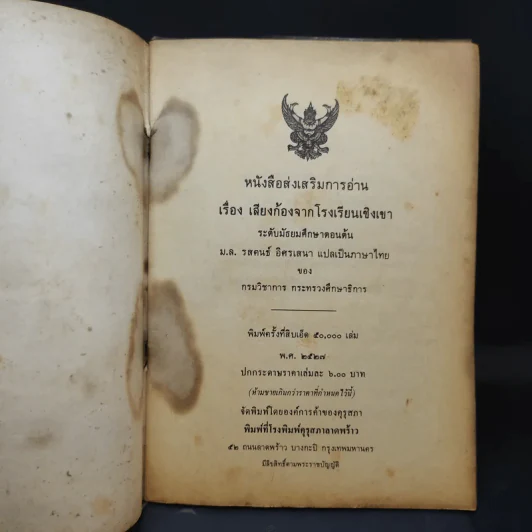 หนังสือส่งเสริมการอ่าน
เรื่อง เสียงก้องจากโรงเรียนเชิงเขา
ระดับมัธยมศึกษาตอนต้น
ม.ล. รสคนธ์ อิศรเสนา แปลเป็นภาษาไทย
ของ
กรมวิชาการ กระทรวงศึกษาธิการ
พิมพ์ครั้งที่สิบเอ็ด ๕๐,๐๐๐ เล่ม
พ.ศ. ๒๕๒๗
ปกกระดาษราคาเล่มละ ๖.๐๐ บาท
(ห้ามขายเกินกว่าราคาที่กำหนดไว้นี้)
จัดพิมพ์โดยองค์การค้าของคุรุสภา
พิมพ์ที่โรงพิมพ์คุรุสภาลาดพร้าว
๕๒ ถนนลาดพร้าว บางกะปิ กรุงเทพมหานคร
มีลิขสิทธิ์ตามพระราชบัญญัติ